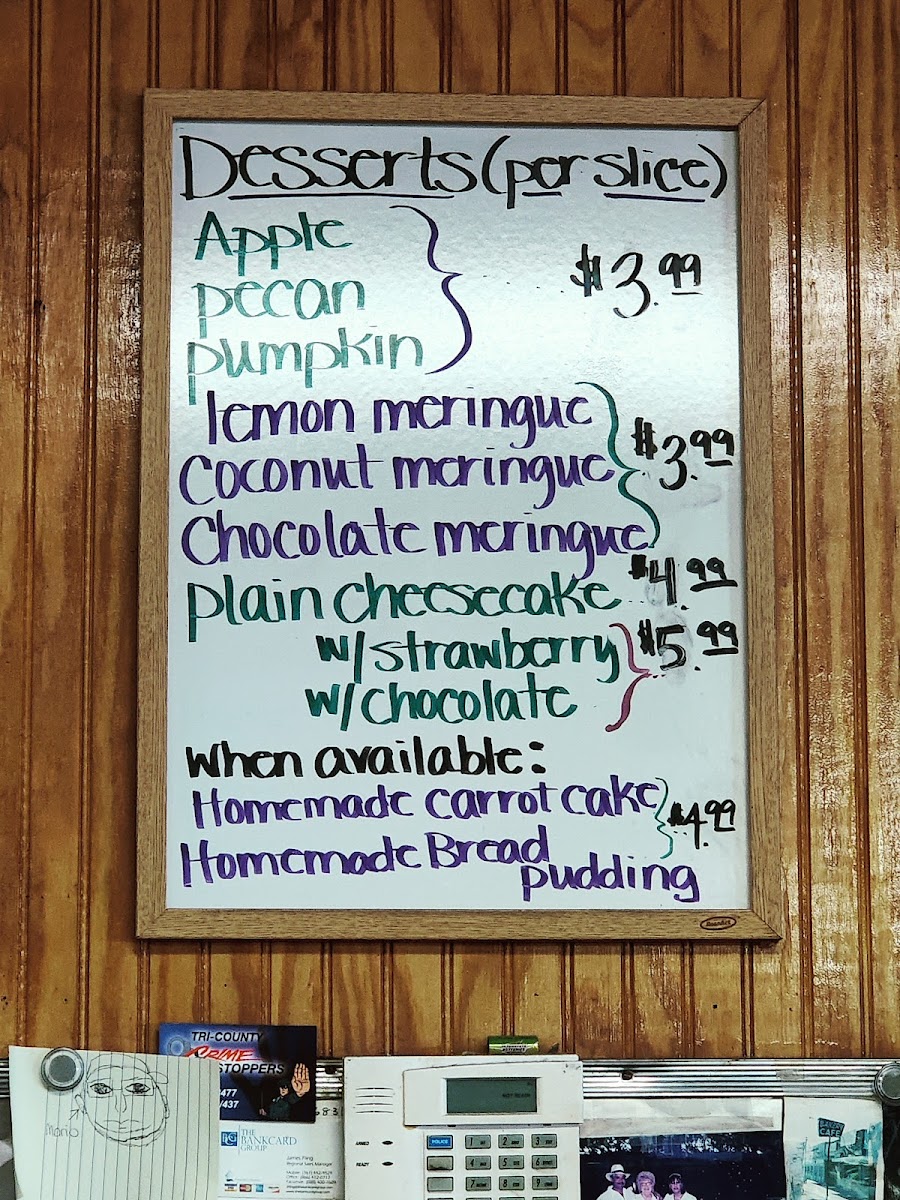 Desserts (per slice)
Apple
pecan
pumpkin
$3.99
lemon meringue
Coconut meringue
Chocolate meringue
$3.99
plain cheesecake $4.99
w/strawberry
w/chocolate
$5.99
when available:
Homemade carrot cake
Homemade Bread
pudding
$4.99
TRI-COUNTY
CRIME
STOPPERS
Mario
THE
BANKCARD
GROUP
ARMED
READY
POLICE
1
2
3
4
5
6
7
8
9
CAFE